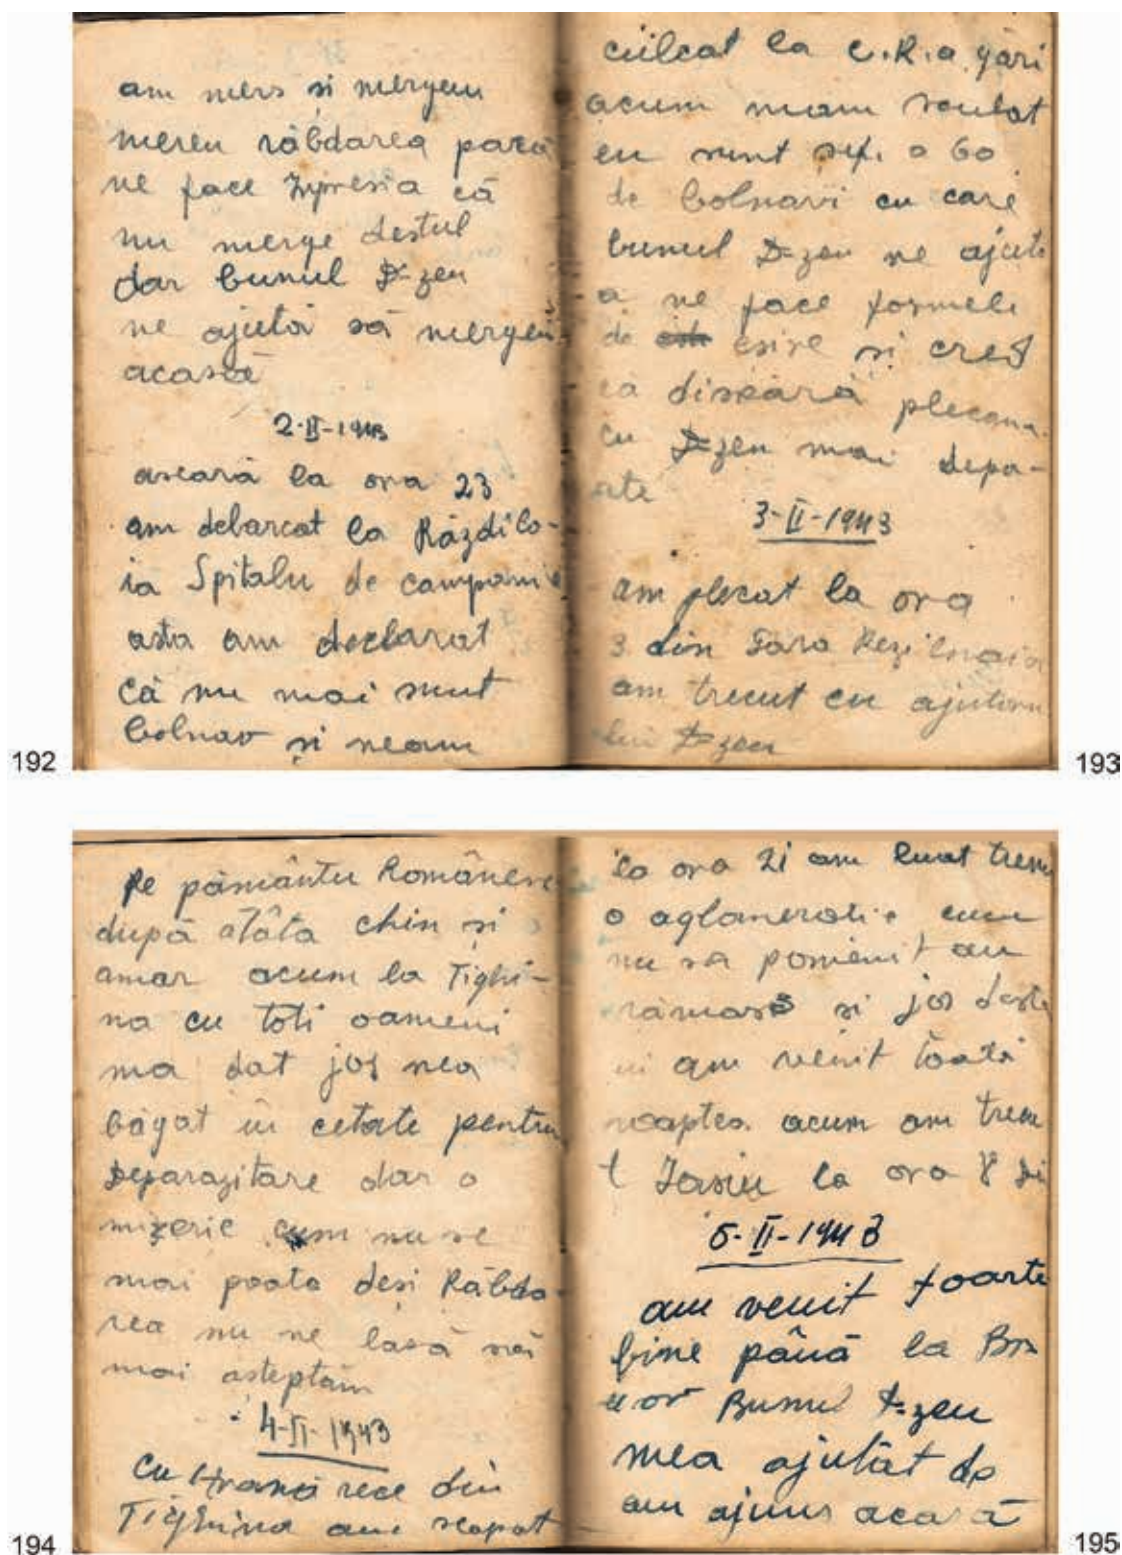 am mers si mergem
mereu răbdarea parcă
ne face Impresia că
nu merge destul
dar bunul D-zeu
ne ajută să mergem
acasă
2-II-1943
aseară la ora 23
am debarcat la Răzdilo-
ia Spitalu de campanie
asta am declarat
că nu mai sunt
bolnav și neam
192
culcat la C.R.a gări
acum mam sculat
eu sunt șef. a 60
de bolnavi cu care
bunul D-zeu ne ajută
a ne face formele
de esire și cred
că diseară plecăm
cu D-zeu mai depa-
rte
3-II-1943
am plecat la ora
3 din Gara
am trecut cu ajutoru
lui D-zeu
193
pe pământu Românesc
după atâta chin și
amar acum la Tighi-
na cu toti oameni
ma dat jos nea
băgat în cetate pentru
Deparazitare dar o
mizerie cum nu se
mai poate deși Răbda-
rea nu ne lasă să
mai așteptăm
4-II-1943
cu Hrană rece din
Tighina am scapat
194
la ora 21 am luat trenu
o aglomeratie cum
nu sa pomenit au
rămas și jos destu
i am venit toată
noaptea acum am trecu
t Iasiu la ora 8 di
5-II-1943
am venit foarte
bine până la Bra
Bunul D-zeu
mea ajutat de
am ajuns acasă
195